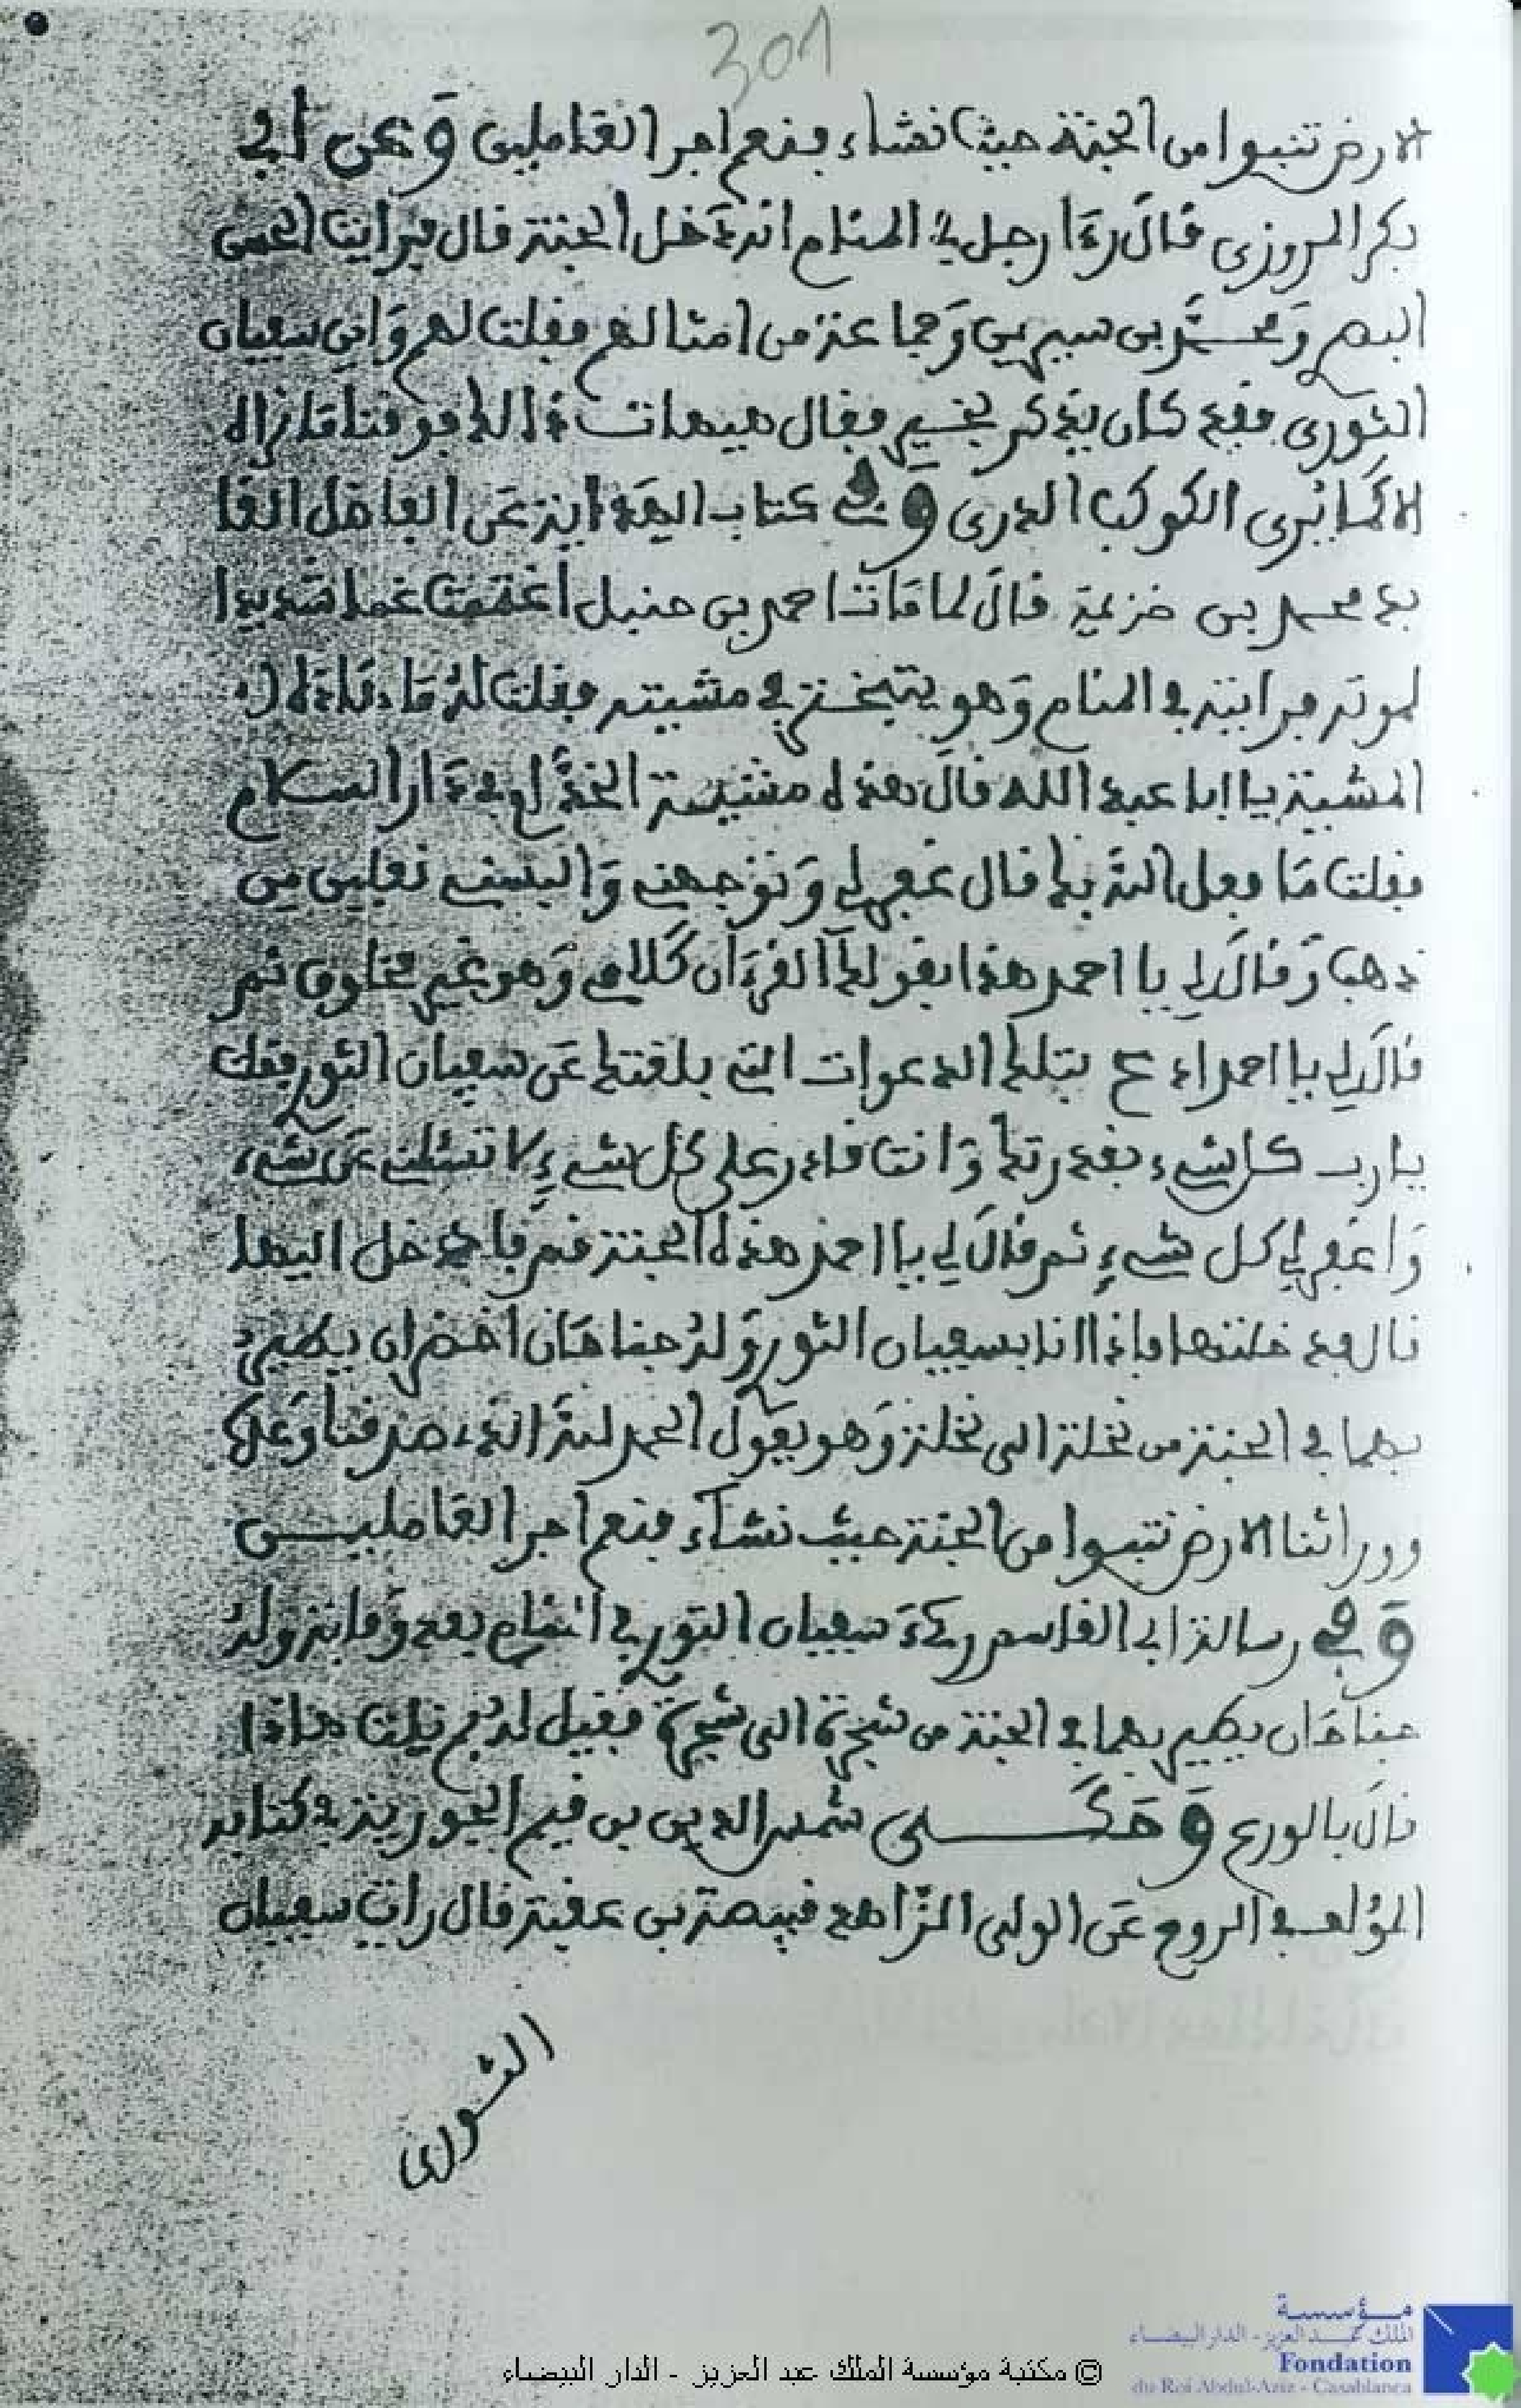 301
الارض نتبوا من الجنة حيث نشاء فنعم اجر العاملين وعن ابي
بكر المروزي قال رءا رجل في المنام انه دخل الجنة قال فرايت الحسن
البصر ومحمد بن سيرين وجماعة من امثالهم فقلت لهم واين سفيان
الثوري فقد كان يذكر بخير فقال هيهات ذالك فوقنا ما نراه
الا كما نرى الكوكب الدري وفي كتاب الهداية عن الفاضل العا
بد محمد بن خزيمة قال لما مات احمد بن حنبل اغتممت غما شديدا
لموته فرايته في المنام وهو يتبختر في مشيته فقلت له ما هذه
المشية يا ابا عبد الله قال هذه مشيت الخدام في دار السلام
فقلت ما فعل الله بك قال غفر لي وتوجني والبسني نعلين من
ذهب وقال لي يا احمد هذا بقولك القرءان كلامي وهو غير مخلوق ثم
قال لي يا احمد ادع بتلك الدعوات التي بلغتك عن سفيان الثوري فقلت
يا رب كل شيء بقدرتك وانت قادر على كل شيء لا تسئلني عن شيء
واغفر لي كل شيء ثم قال لي يا احمد هذه الجنة قم فادخل اليها
قال فدخلتها فاذا انا بسفيان الثوري وله جناحان اخضران يطير
بهما في الجنة من نخلة الى نخلة وهو يقول الحمد لله الذي صدقنا وعده
وورائنا الارض نتبوا من الجنة حيث نشاء فنعم اجر العاملين
وفي رسالة ابي القاسم رءى سفيان الثوري في المنام بعد وفاته وله
جناحان يطير بهما في الجنة من شجرة الى شجرة فقيل له بم نلت هاذا
قال بالورع وحكى شمس الدين بن قيم الجوزية في كتابه
المؤلف في الروح عن الولي الزاهد قبيصة بن عقبة قال رايت سفيان
الثوري
مؤسسة
الملك عبد العزيز - الدار البيضاء
Fondation
du Roi Abdul-Aziz - Casablanca
© مكتبة مؤسسة الملك عبد العزيز - الدار البيضاء